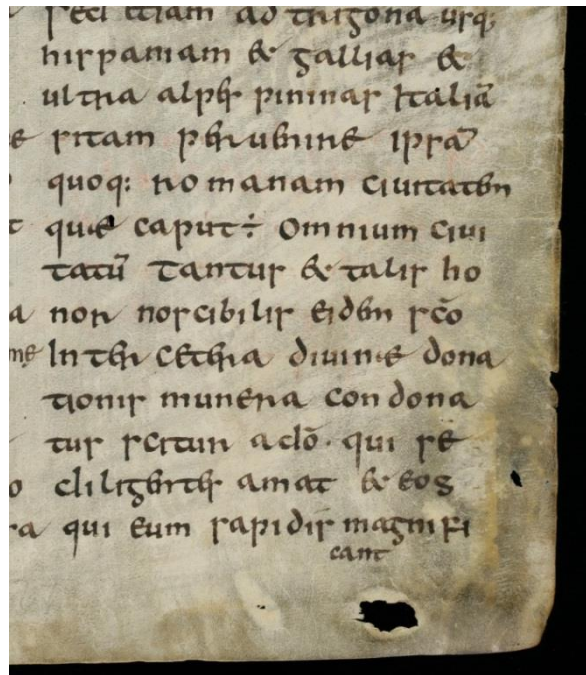 sed etiam ad trigona usq;
hispaniam & gallias &
ultra alpes pininas Italiā
sitam peruenire ipsā
quoq; romanam ciuitatem
quae caput ÷ omnium ciui
tatū tantus & talis ho
nor noscibilis eidem scō
Inter cetera diuinae dona
tionis munera condona
tus scitur a dō · qui se
diligentes amat & eos
qui eum sapidis magnifi
cant